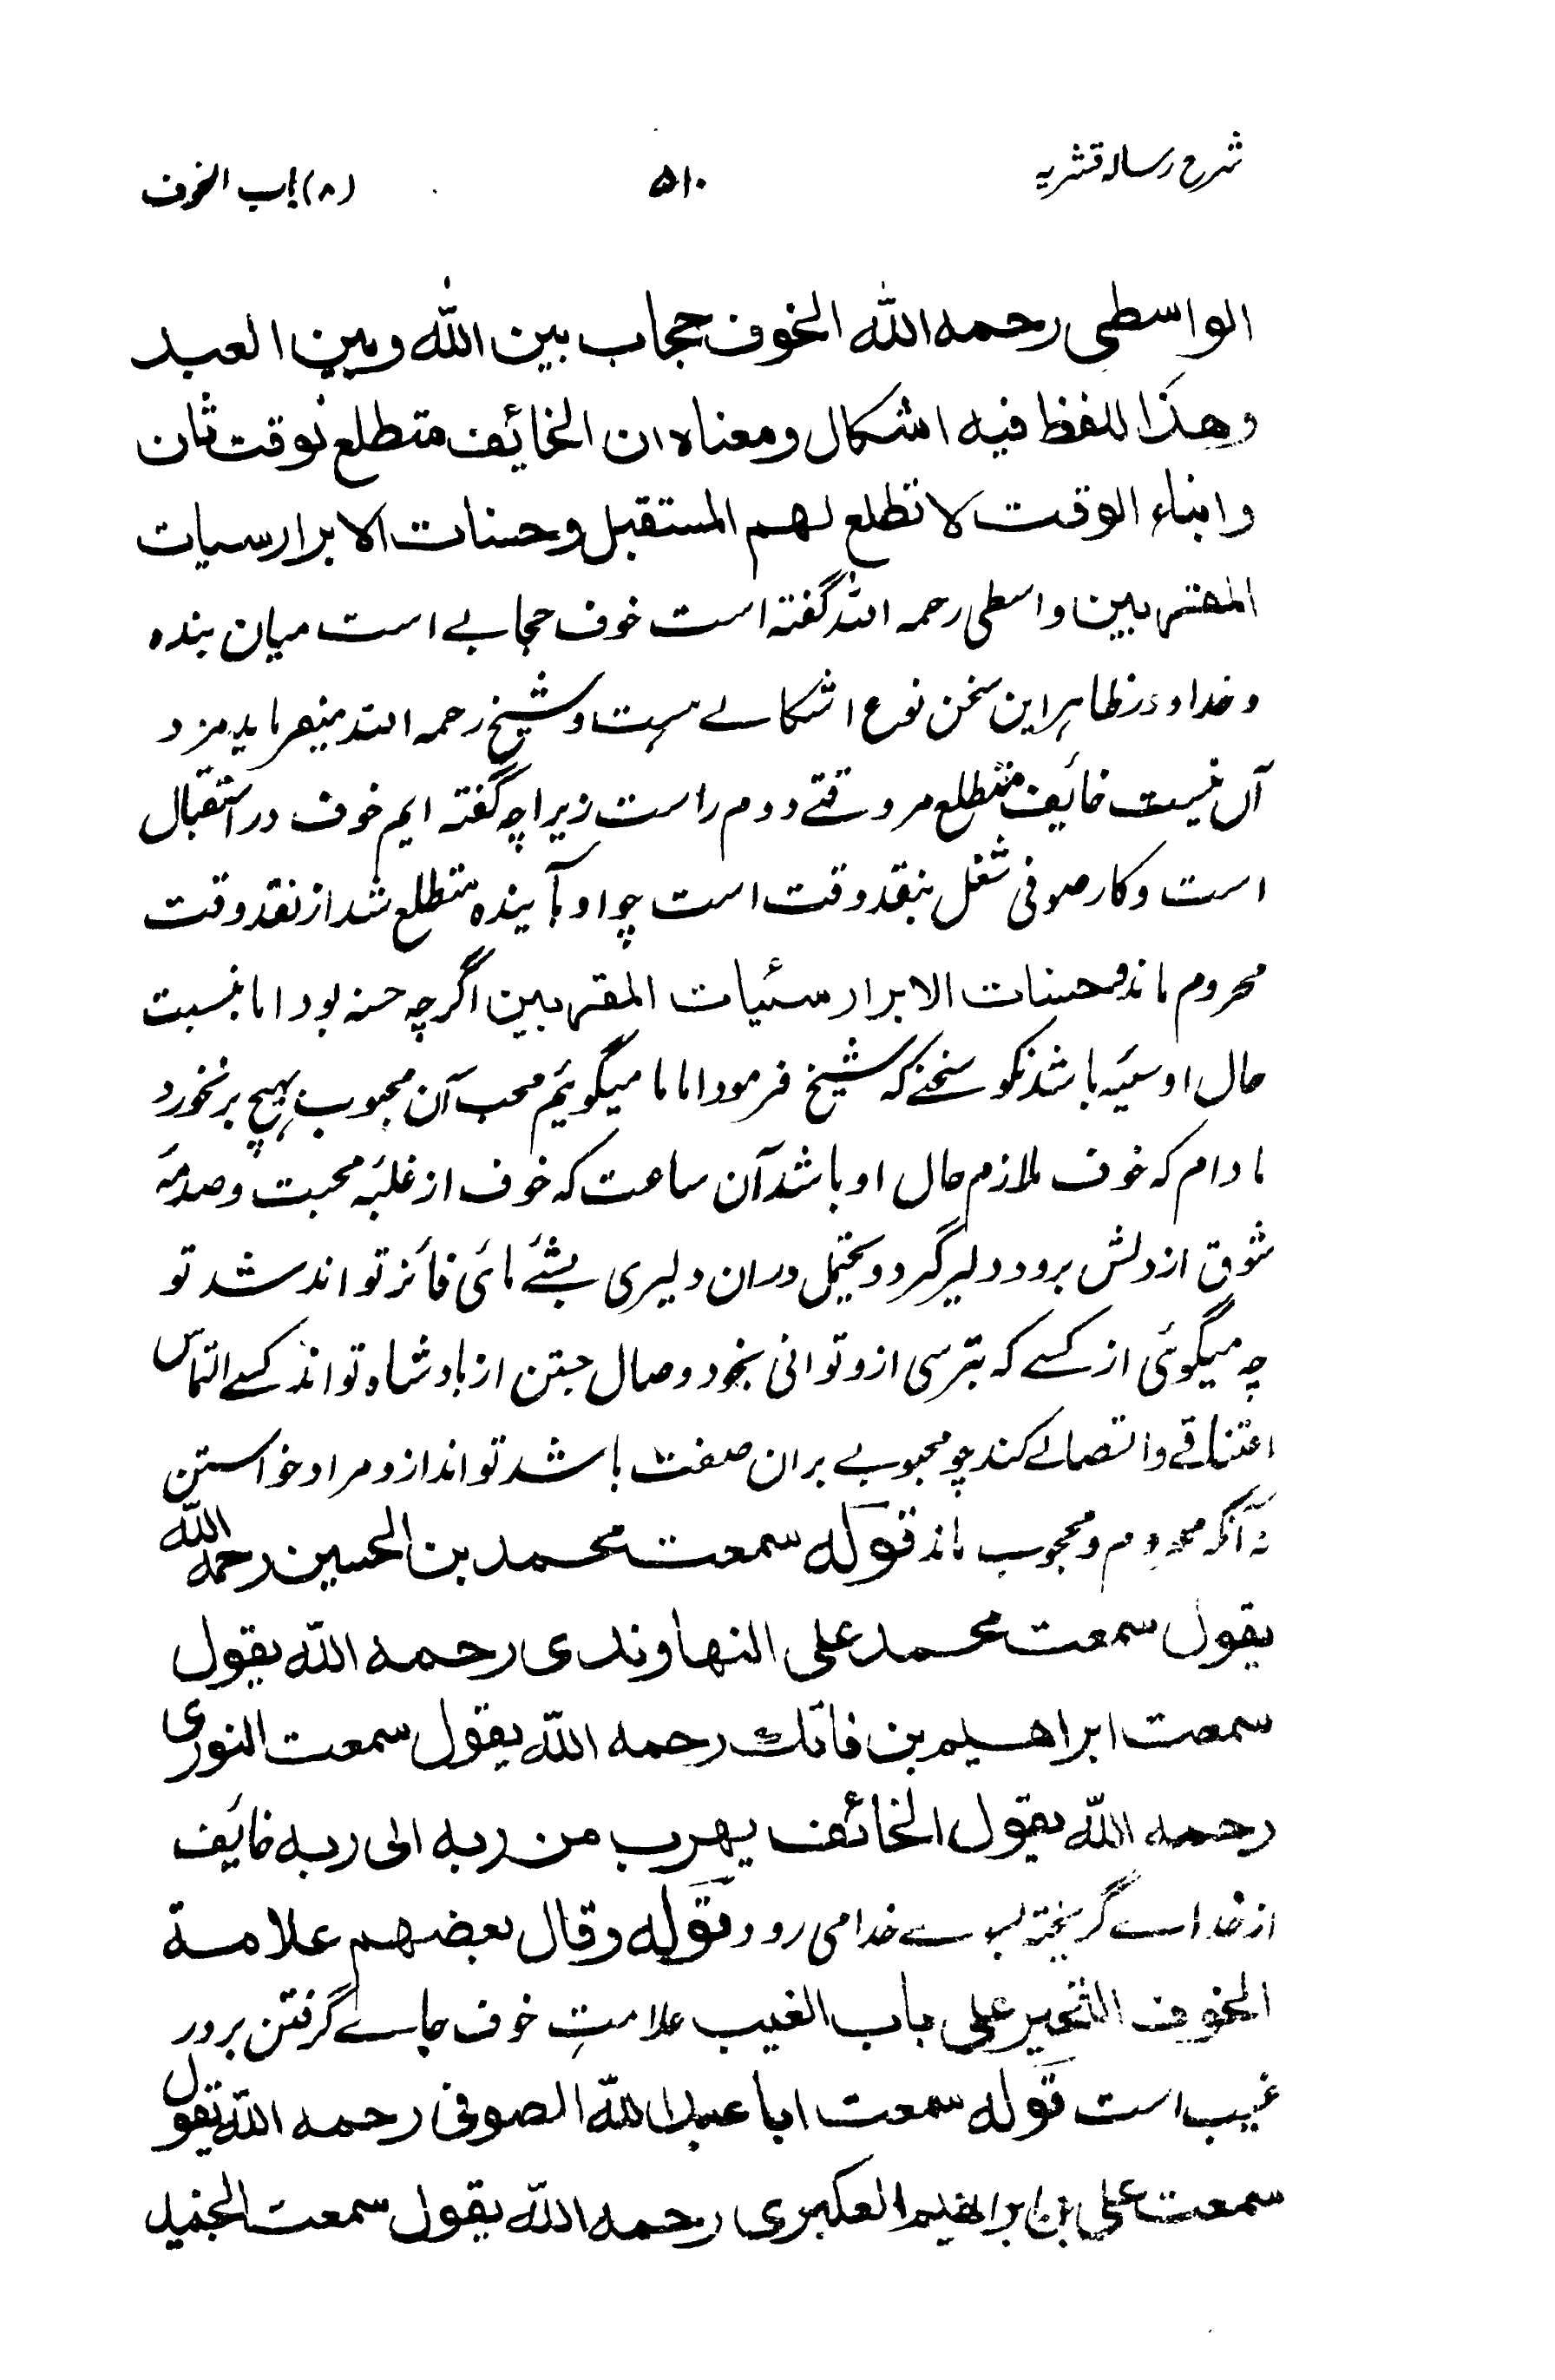 شرح رسالہ قشریہ
۵۱۰
(۸) باب الخوف
الواسطی رحمه الله الخوف حجاب بین الله وبین العبد
وهذا للفظ فیه اشکال ومعناه ان الخائف متطلع لوقت ثان
وابناء الوقت لا تطلع لهم المستقبل وحسنات الابرار سیات
المقربین واسطی رحمہ اللہ گفتہ است خوف حجابے است میان بندہ
وخدا و در ظاہر این سخن نوع اشکالے ہست و شیخ رحمہ اللہ میفرماید مزد
آن نیست خائف متطلع مر وقتے دوم راست زیرا چہ گفتہ ایم خوف در استقبال
است و کار صوفی شغل بنقد وقت است چو او بآیندہ متطلع شد از نقد وقت
محروم ماند و حسنات الابرار سئیات المقربین اگرچہ حسنہ بود اما بنسبت
حال او سئیہ باشد نکو سخنے کہ شیخ فرمود اما ما میگوئیم محب آن محبوب بہیچ برنخورد
مادام کہ خوف ملازم حال او باشد آن ساعت کہ خوف از غلبۂ محبت و صدمۂ
شوق از دلش برود دلیر گردد و یحتمل دران دلیری بشئے مائی فائز تواند شد تو
چہ میگوئی از کسے کہ بترسی ازو توانی بخود وصال جستن از بادشاہ تواند کسے التماس
اعتناقے و اتصالے کند چو محبوبے بران صفت باشد تواند ازو مراد خواستن
نہ آنکہ محروم و محجوب ماند قوله سمعت محمد بن الحسین رحمه الله
یقول سمعت محمد علی النهاوندی رحمه الله یقول
سمعت ابراهیم بن فاتك رحمه الله یقول سمعت النوری
رحمه الله یقول الخائف یهرب من ربه الی ربه خایف
از خداے گریختہ بسوے خدا می رود قوله وقال بعضهم علامة
الخوف التحیر علی باب الغیب علامتِ خوف جاے گرفتن بر در
غیب است قوله سمعت ابا عبد الله الصوفی رحمه الله یقول
سمعت علی بن ابراهیم العکبری رحمه الله یقول سمعت الجنید